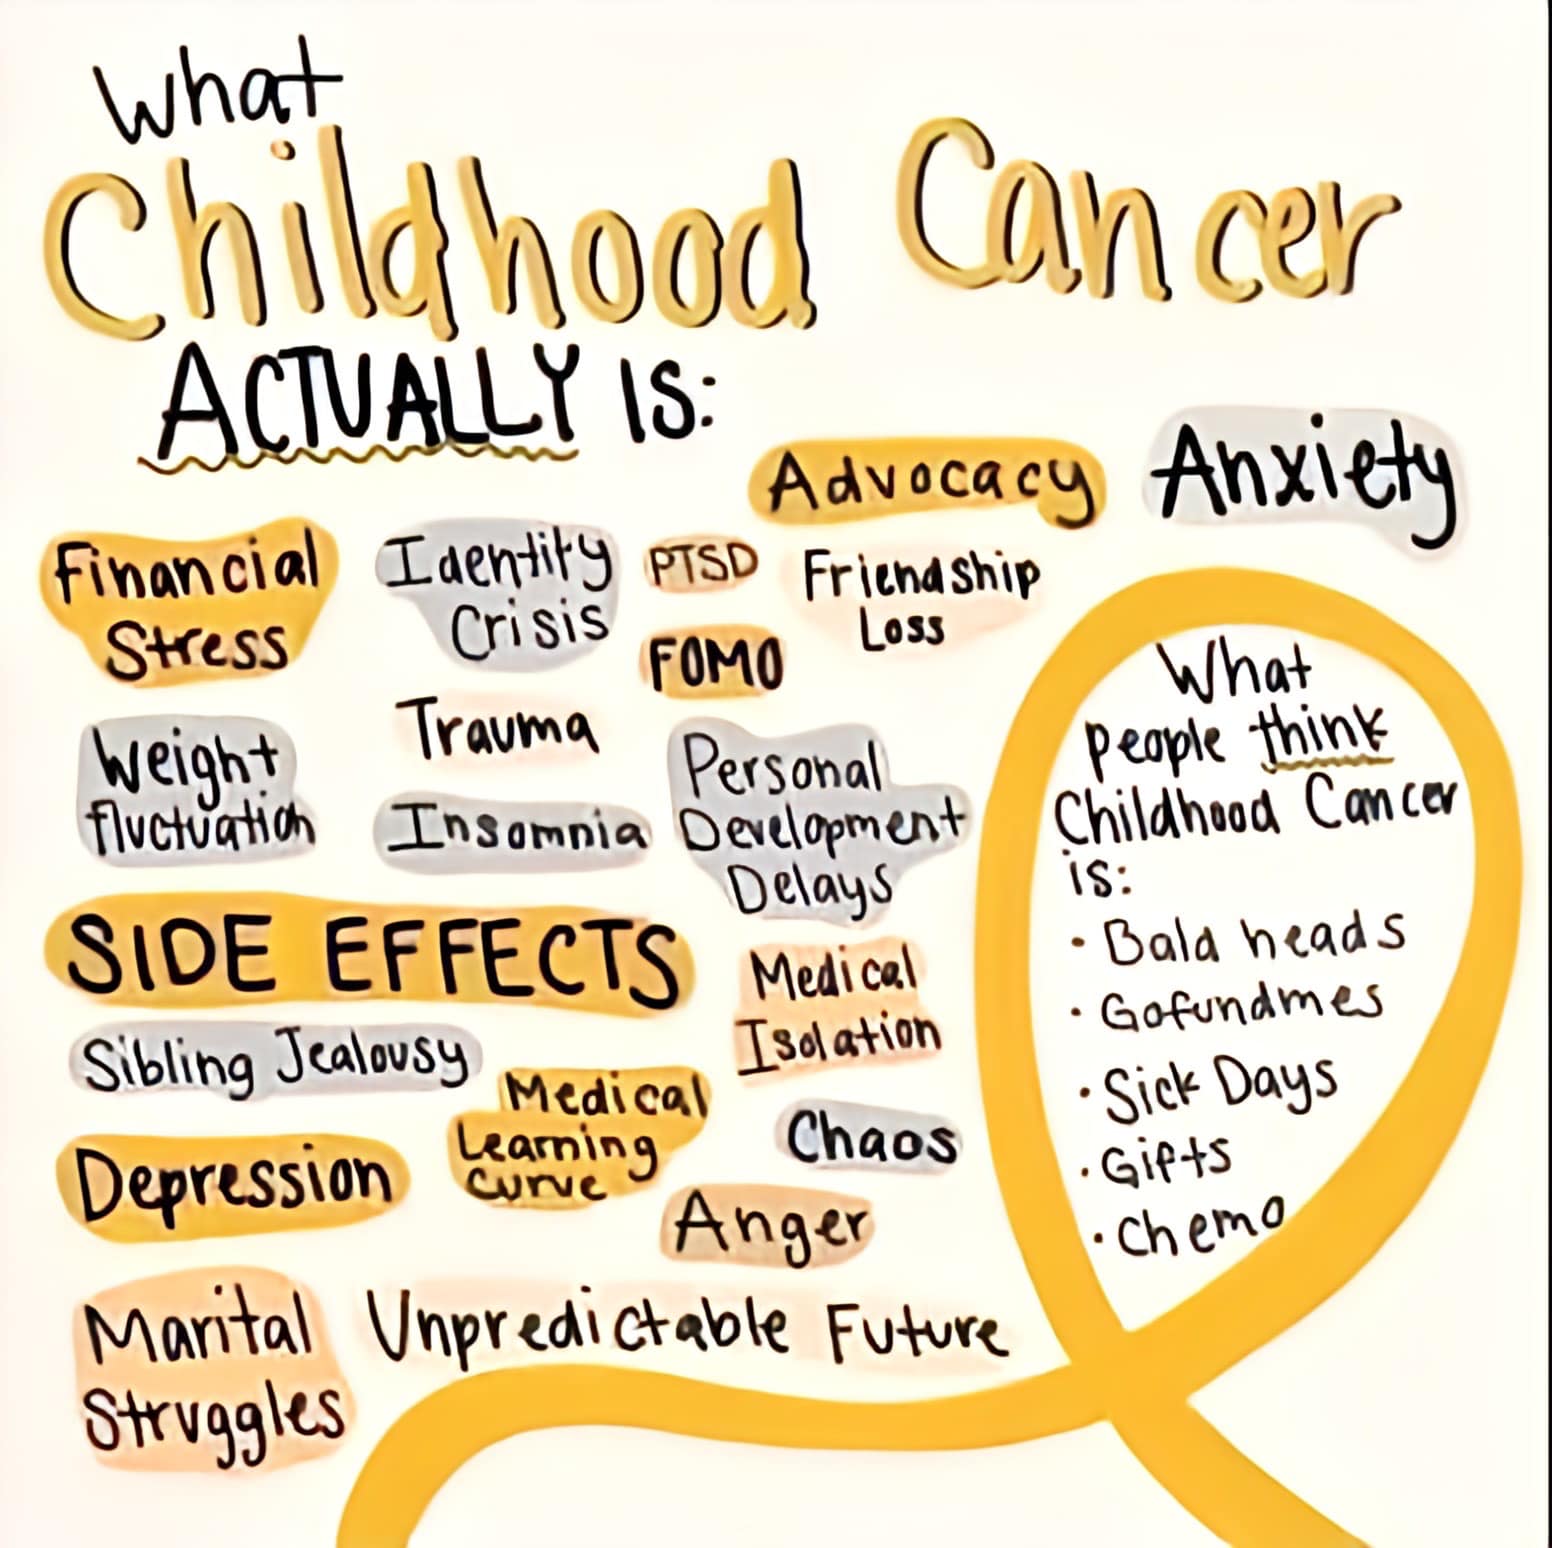 What
Childhood Cancer
ACTUALLY IS:
Advocacy
Anxiety
Financial
Stress
Identity
Crisis
PTSD
Friendship
Loss
FOMO
Weight
fluctuation
Trauma
Insomnia
Personal
Development
Delays
SIDE EFFECTS
Medical
Isolation
Sibling Jealousy
Medical
Learning
Curve
Chaos
Depression
Anger
Marital
Struggles
Unpredictable Future
What
people think
Childhood Cancer
is:
• Bald heads
• Gofundmes
• Sick Days
• Gifts
• Chemo